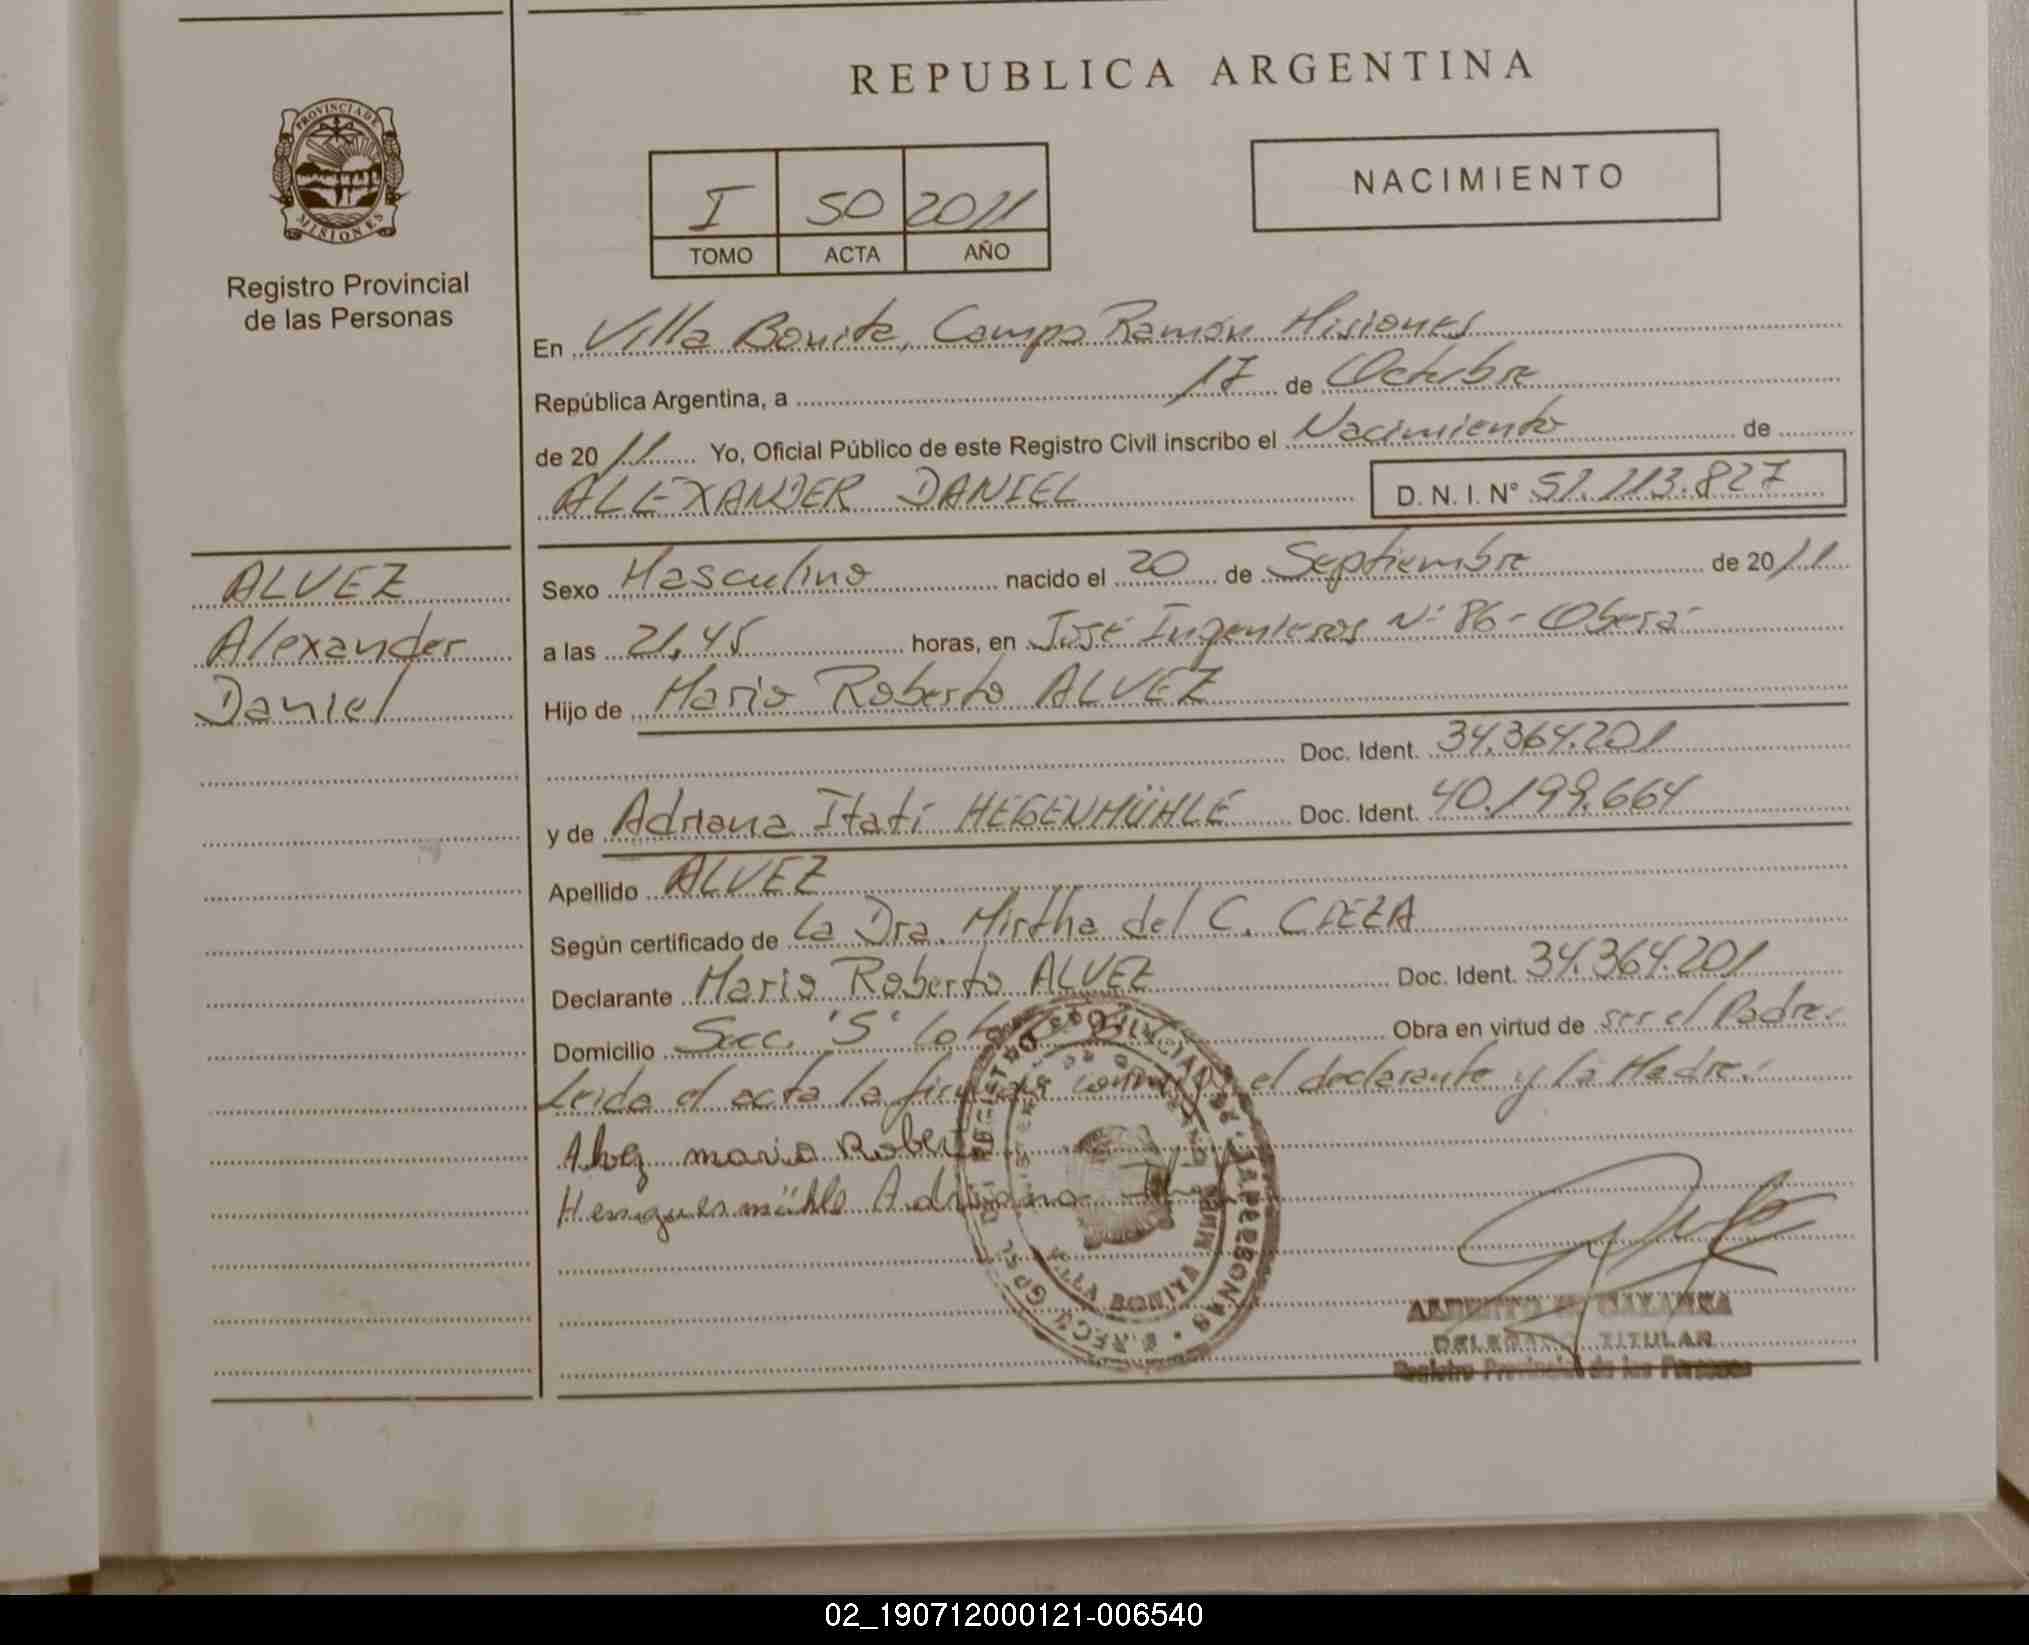 REPUBLICA ARGENTINA
PROVINCIA DE MISIONES
Registro Provincial
de las Personas
I 50 2011
TOMO ACTA AÑO
NACIMIENTO
En Villa Bonita, Campo Ramón Misiones
República Argentina, a 17 de Octubre
de 2011 Yo, Oficial Público de este Registro Civil inscribo el Nacimiento de
ALEXANDER DANIEL D. N. I. N° 51.113.827
ALVEZ
Alexander
Daniel
Sexo Masculino nacido el 20 de Septiembre de 2011
a las 21,45 horas, en José Ingenieros N° 86 - Oberá
Hijo de Mario Roberto ALVEZ
Doc. Ident. 34.364.201
y de Adriana Itatí HEGENMÜHLE Doc. Ident. 40.199.664
Apellido ALVEZ
Según certificado de la Dra. Mirtha del C.
Declarante Mario Roberto ALVEZ Doc. Ident. 34.364.201
Domicilio Secc. "5" Obra en virtud de ser el Padre.
Leida el acta la firman conmigo el declarante y la Madre.
Alvez mario Roberto
Adriana
VILLA BONITA
DELEGADO TITULAR
Registro Provincial de las Personas
02_190712000121-006540